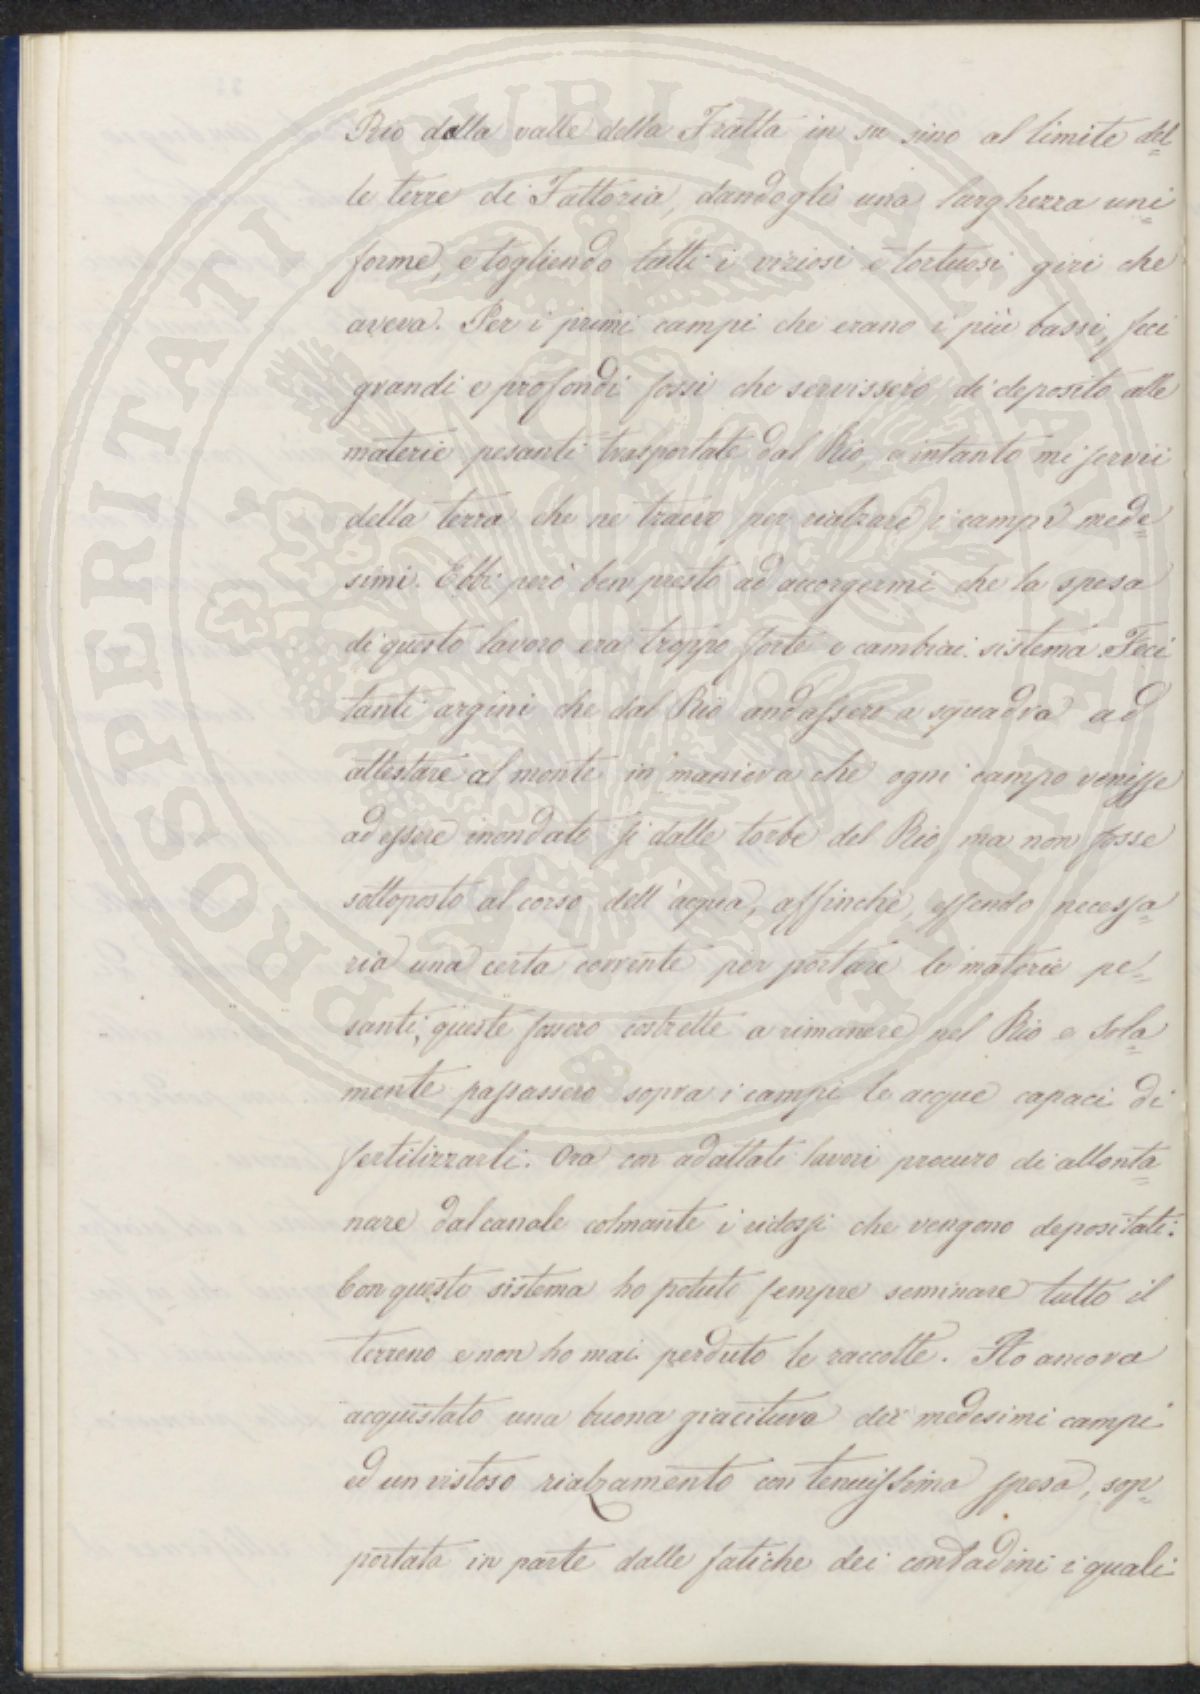 Rio della valle della Fratta in su sino al limite del=
le terre di Fattoria, dandogli una larghezza uni=
forme, e togliendo tutti i viziosi e tortuosi giri che
aveva. Per i primi campi che erano i più bassi, feci
grandi e profondi fossi che servissero di deposito alle
materie pesanti trasportate dal Rio, e intanto mi servii
della terra che ne traevo per rialzare i campi mede=
simi. Ebbi però ben presto ad accorgermi che la spesa
di questo lavoro era troppo forte e cambiai sistema. Feci
tanti argini che dal Rio andassero a squadra ad
attestare al monte in maniera che ogni campo venisse
ad essere inondato si dalle torbe del Rio, ma non fosse
sottoposto al corso dell'acqua, affinchè, essendo necessa=
ria una certa corrente per portare le materie pe=
santi, queste fossero costrette a rimanere nel Rio e sola=
mente passassero sopra i campi le acque capaci di
fertilizzarli. Ora con adattati lavori procuro di allonta=
nare dal canale colmante i ridossi che vengono depositati.
Con questo sistema ho potuto sempre seminare tutto il
terreno e non ho mai perduto le raccolte. Ho ancora
acquistato una buona giacitura dei medesimi campi
ed un vistoso rialzamento con tenuissima spesa, sop=
portata in parte dalle fatiche dei contadini i quali
PROSPERITATI PUBLICAE AUGENDAE